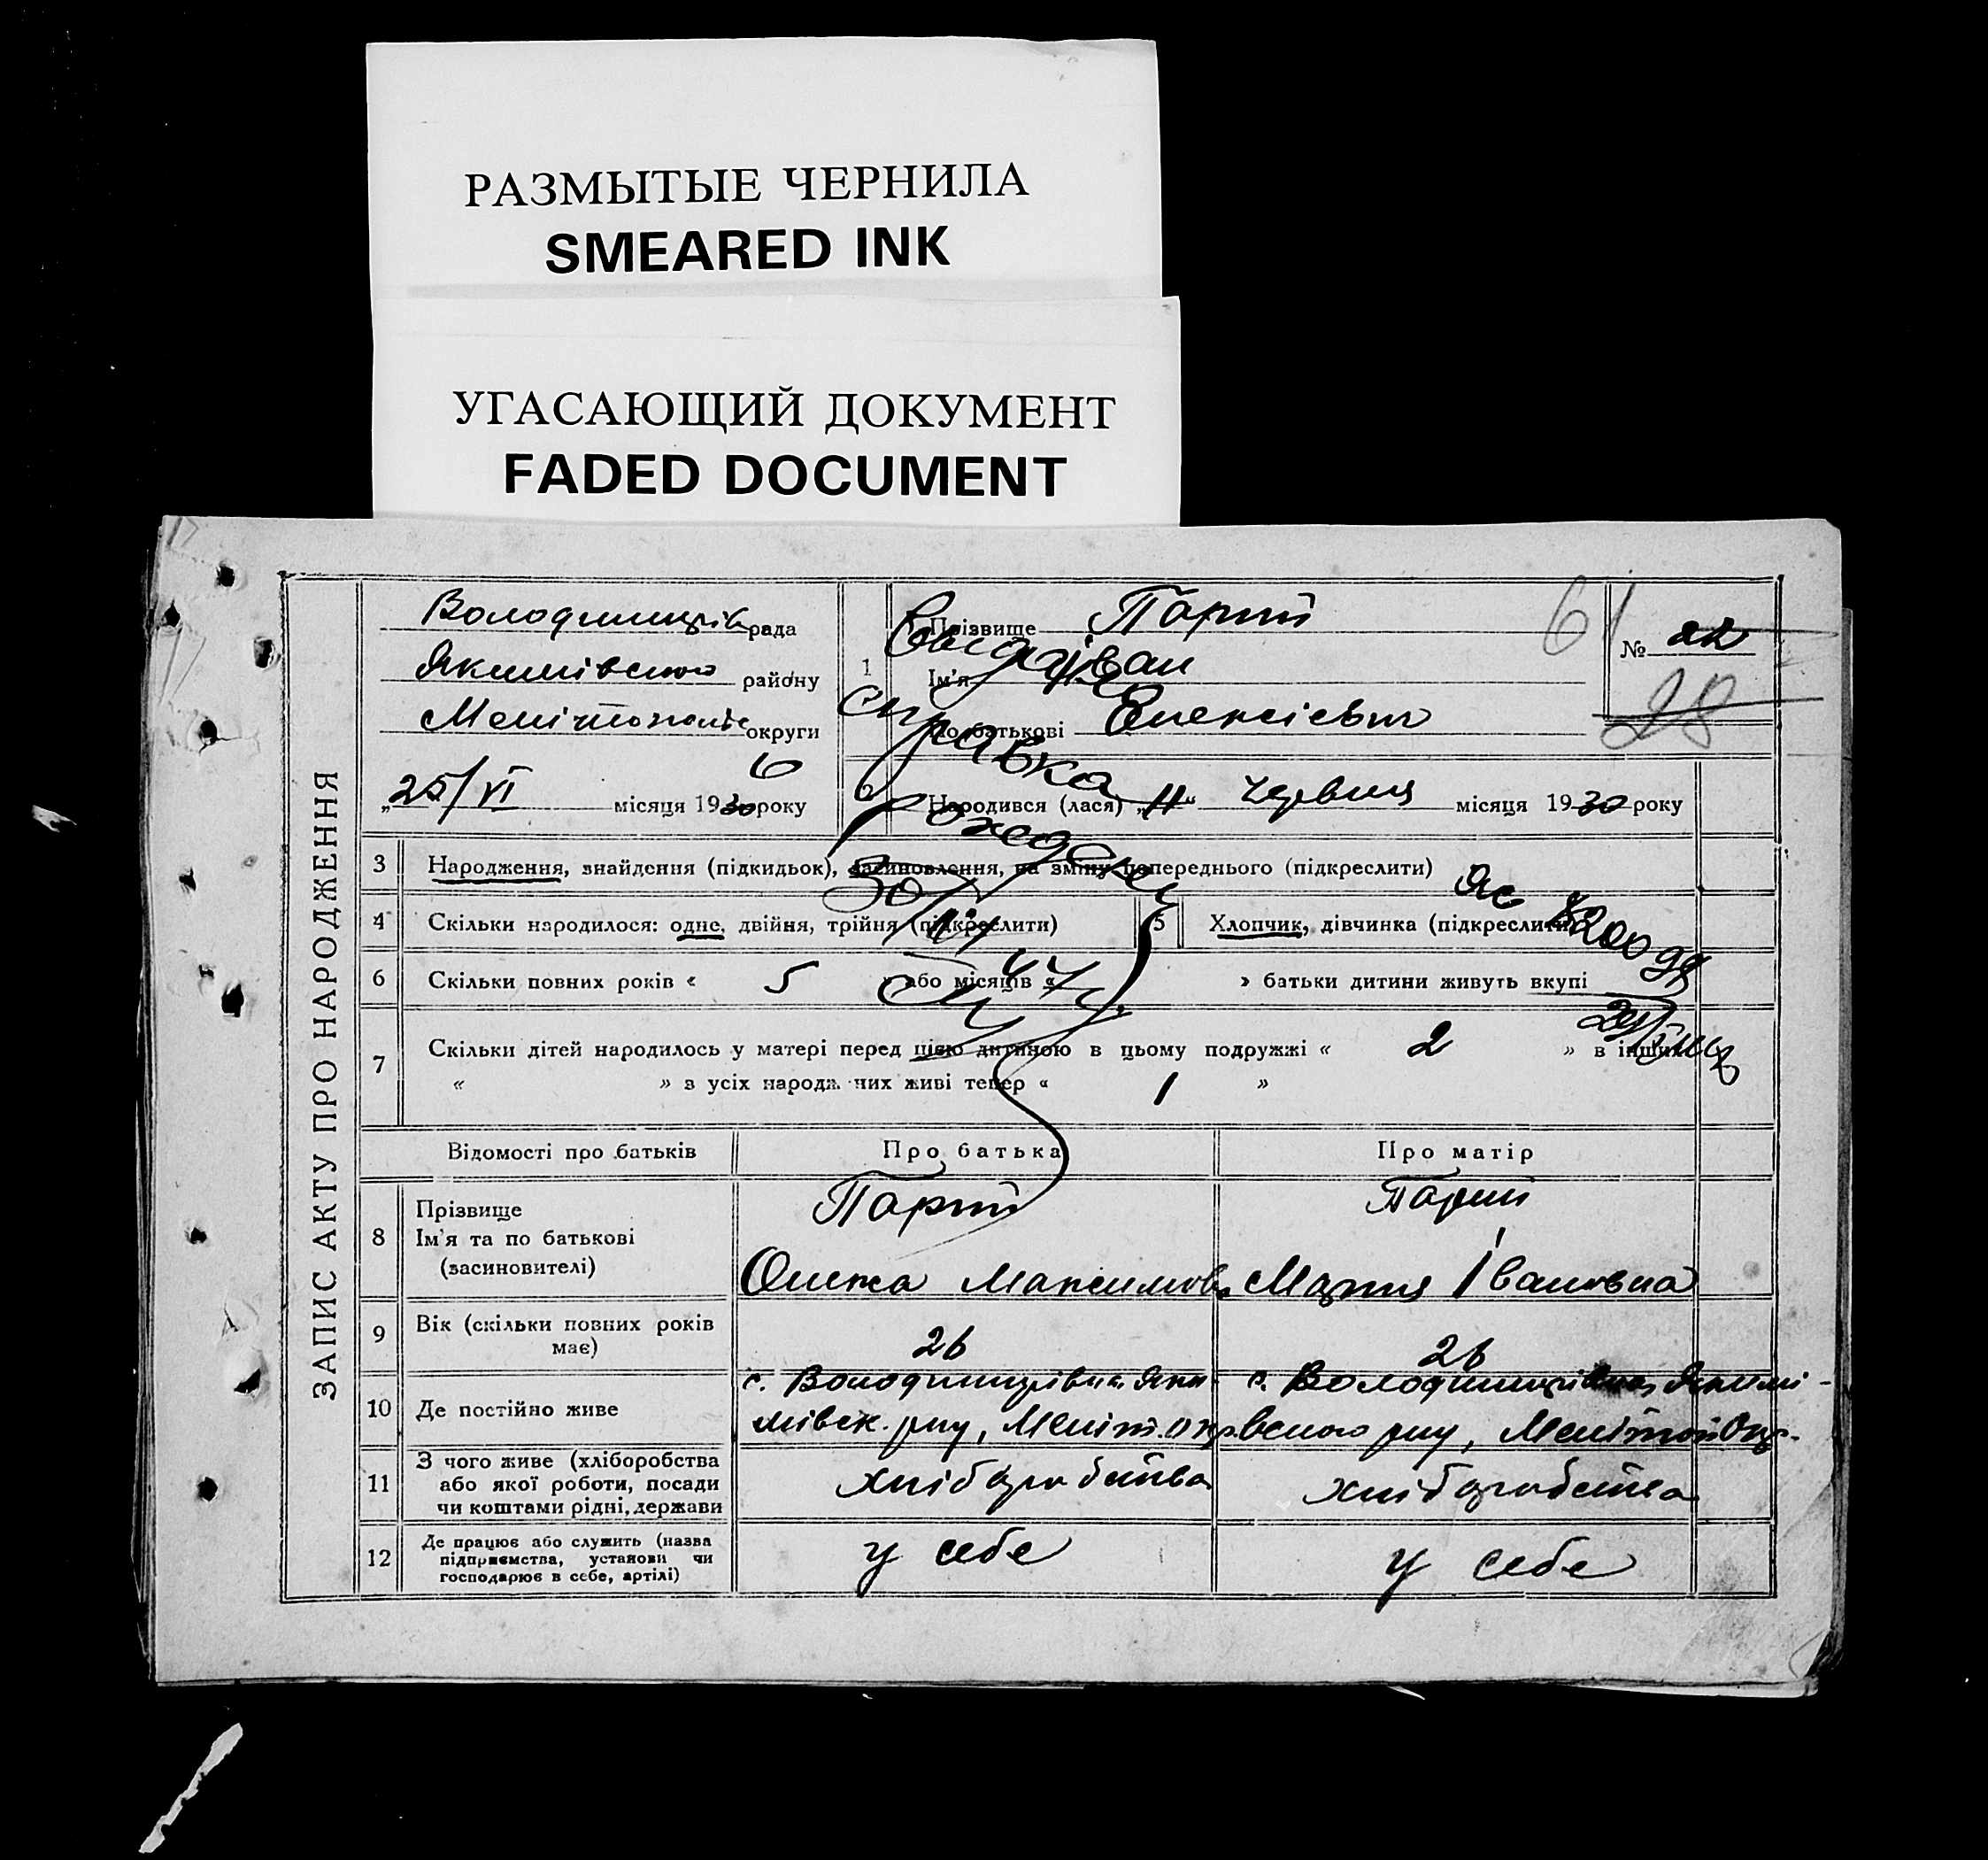 РАЗМЫТЫЕ ЧЕРНИЛА
SMEARED INK
УГАСАЮЩИЙ ДОКУМЕНТ
FADED DOCUMENT
ЗАПИС АКТУ ПРО НАРОДЖЕННЯ
Володимирів рада
Якимівського району
Мелітополь округи
„25/VI місяця 1930 року
6
1
Прізвище Парій
Ім'я Іван
По батькові Олексієвич
61
№ 22
28
справка
2 Народився (лася) „11“ червня місяця 1930 року
3 Народження, знайдення (підкидьок), засиновлення, на зміну попереднього (підкреслити)
4 Скільки народилося: одне, двійня, трійня (підкреслити)
5 Хлопчик, дівчинка (підкреслити)
30/IV 47
6 Скільки повних років « 5 » або місяців « » батьки дитини живуть вкупі
7 Скільки дітей народилось у матері перед цією дитиною в цьому подружжі « 2 » в інших
« » з усіх народжених живі тепер « 1 »
Відомості про батьків Про батька Про матір
8 Прізвище Парій Парий
Ім'я та по батькові
(засиновителі) Олекса Максимов Мария Івановна
9 Вік (скільки повних років має) 26 26
10 Де постійно живе с. Володимирівка Яки- с. Володимирівка Якимі-
мівск. р-ну, Меліт. окр. вського р-ну, Мелітоп Окр.
11 З чого живе (хліборобства або якої роботи, посади чи коштами рідні, держави хліборобства хліборобства
12 Де працює або служить (назва підприємства, установи чи господарює в себе, артілі) у себе у себе